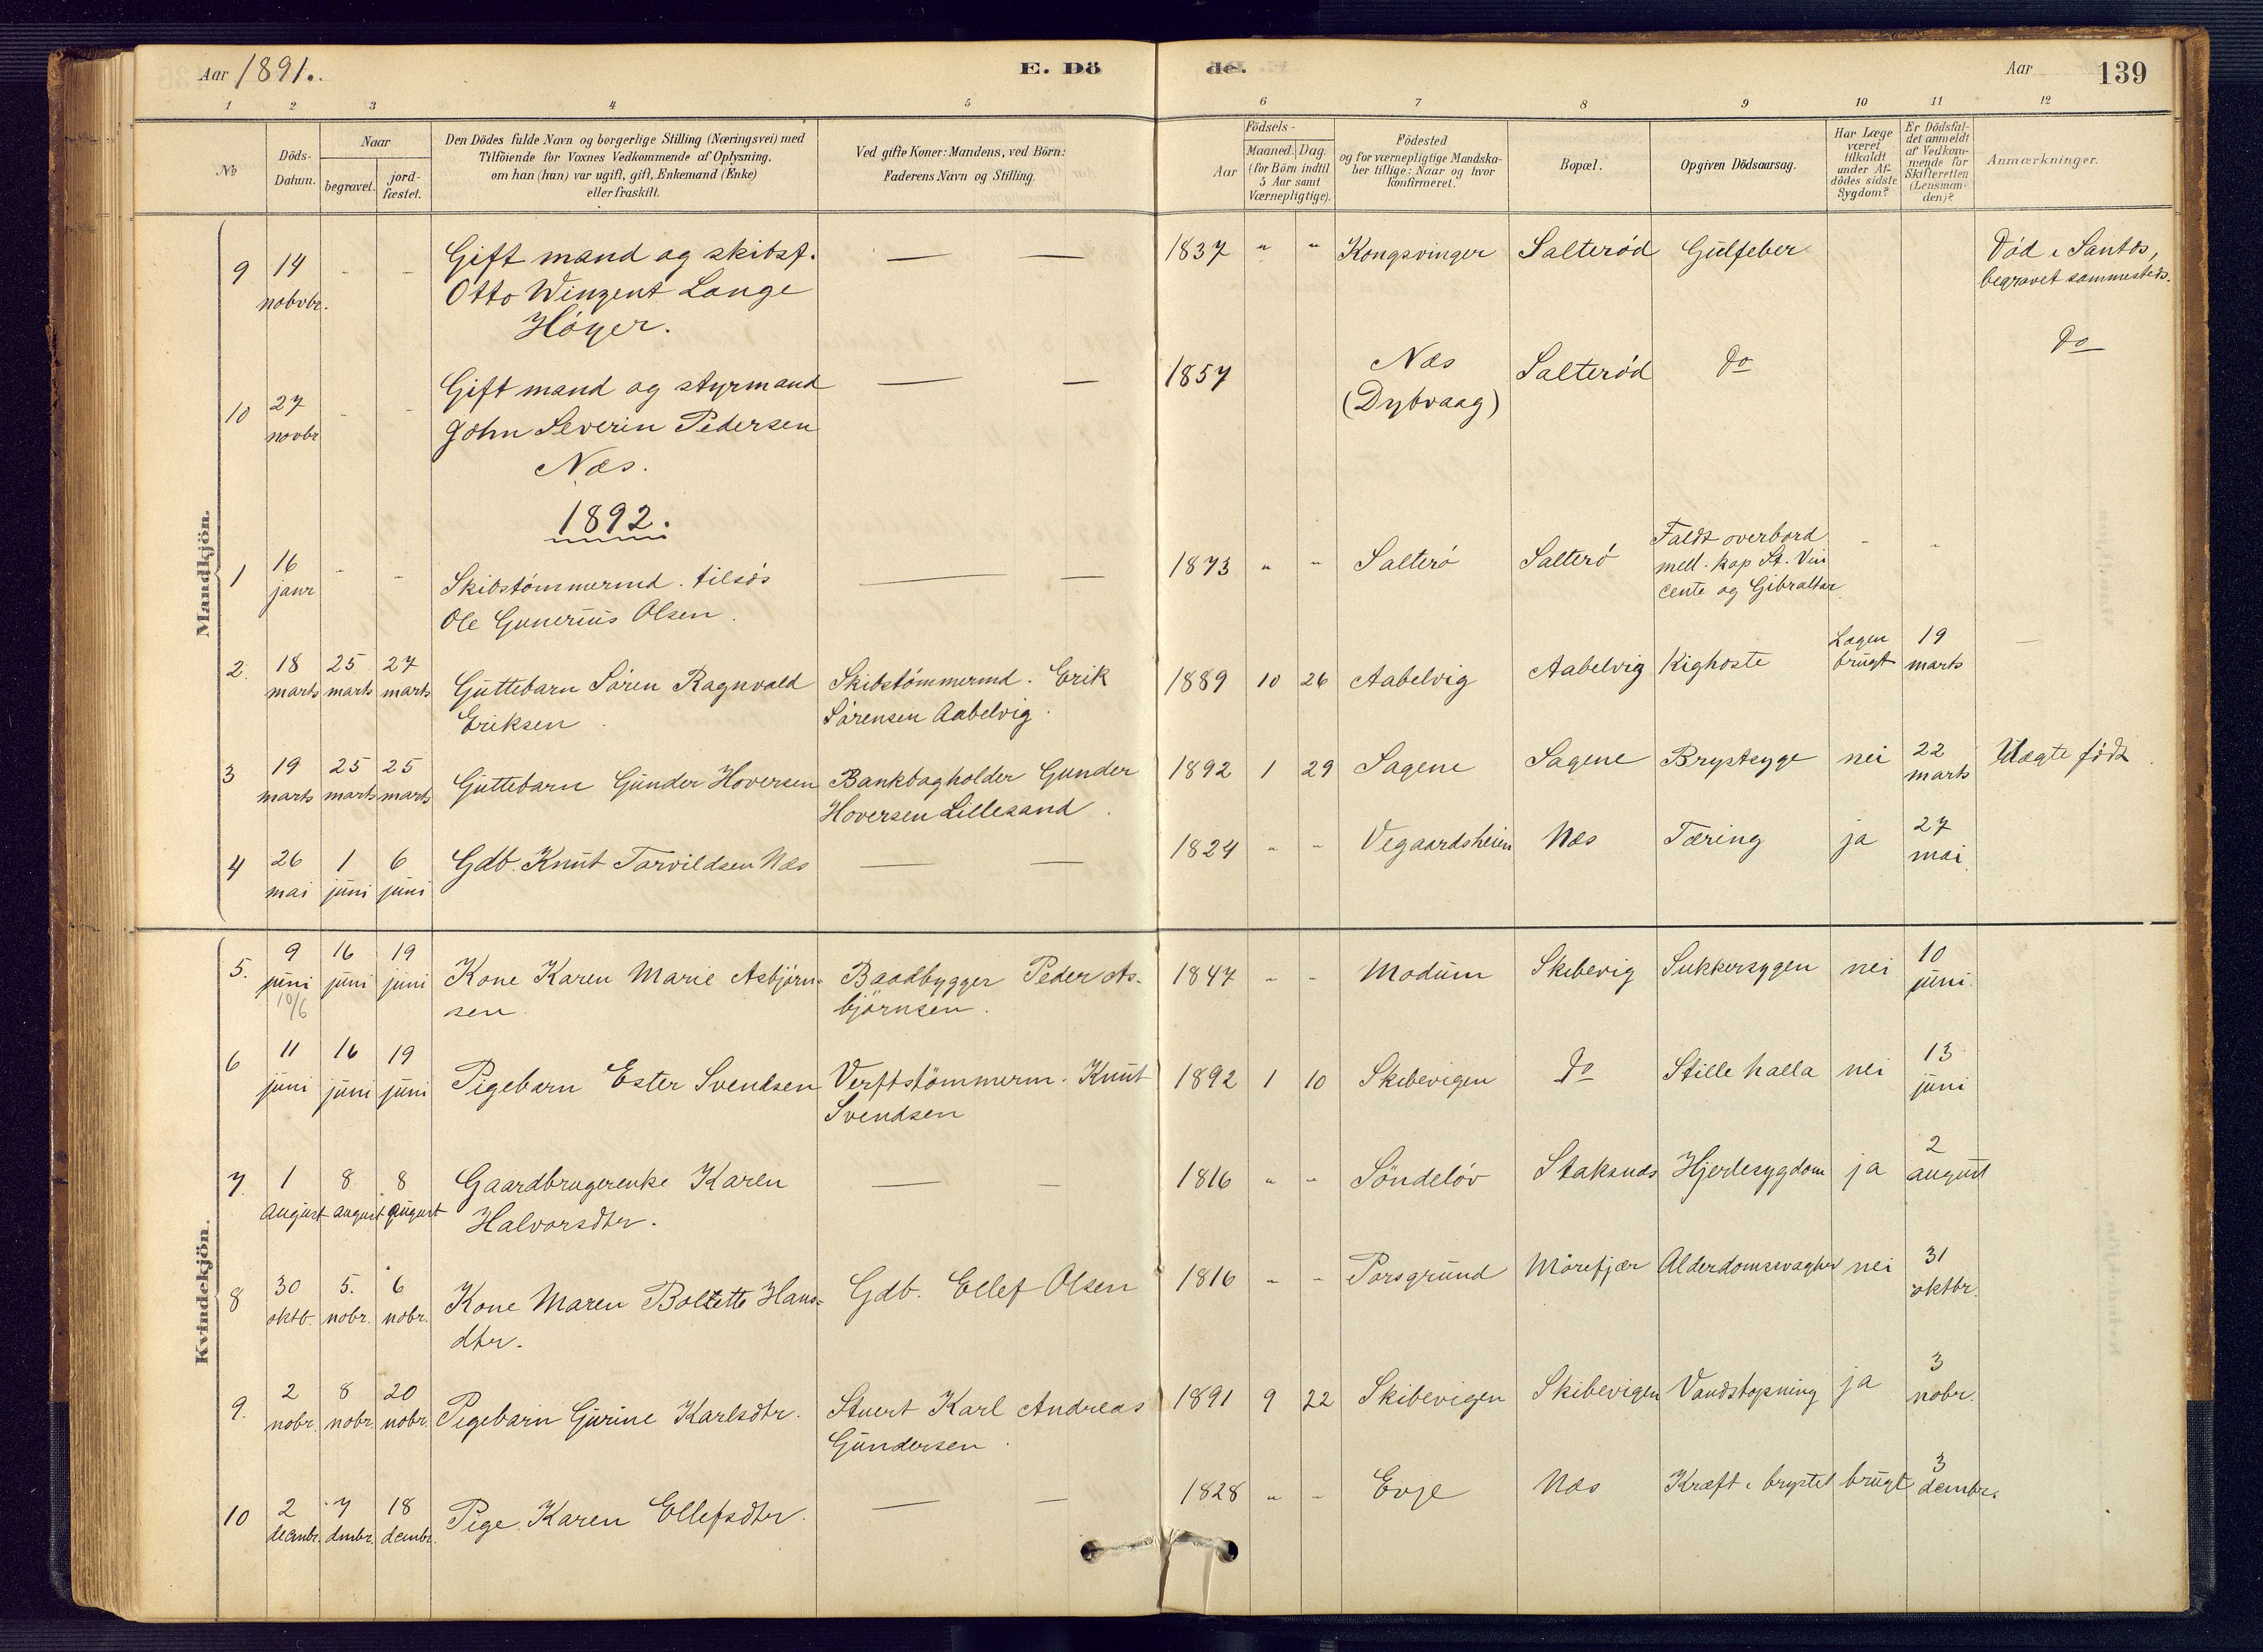 Aar 1891.
E. Dö
de.
Aar
139
1 2 3 4 5 6 7 8 9 10 11 12
No
Döds-Datum.
Naar
begravet.
jord-fæstet.
Den Dödes fulde Navn og borgerlige Stilling (Næringsvei) med
Tilföiende for Voxnes Vedkommende af Oplysning,
om han (hun) var ugift, gift, Enkemand (Enke)
eller fraskilt.
Ved gifte Koner: Mandens, ved Börn:
Faderens Navn og Stilling.
Födsels-
Aar
Maaned. Dag.
(for Börn indtil
5 Aar samt
Værnepligtige).
Födested
og for værnepligtige Mandska-
ber tillige: Naar og hvor
konfirmeret.
Bopæl.
Opgiven Dödsaarsag.
Har Læge
været
tilkaldt
under Af-
dödes sidste
Sygdom?
Er Dödsfal-
det anmeldt
af Vedkom-
mende for
Skifteretten
(Lensman-
den)?
Anmærkninger.
Mandkjön.
9 14 nobvbr. - - Gift mand og skibsf.
Otto Winzent Lange
Höyer.
— — 1837 " " Kongsvinger Salteröd Gulfeber Död i Santos,
begravet sammesteds.
10 27 novbr - - Gift mand og styrmand
John Severin Pedersen
Næs.
— — 1857 Næs
(Dybvaag)
Salteröd do do
1892.
1 16 janr - - Skibstömmermd. tilsös
Ole Gunerius Olsen.
— — 1873 " " Salterö Salterö Faldt overbord
mell. kap St. Vin
cente og Gibraltar
- -
2. 18 marts 25 marts 27 marts Guttebarn Sören Ragnvald
Eriksen.
Skibstömmermd. Erik
Sörensen Aabelvig.
1889 10 26 Aabelvig Aabelvig Kighoste Lægen
brugt
19 marts —
3 19 marts 25 marts 25 marts Guttebarn Gunder Hoversen Bankbogholder Gunder
Hoversen Lillesand.
1892 1 29 Sagene Sagene Brystsyge nei 22 marts Uægte födt.
4 26 mai 1 juni 6 juni Gdb. Knut Torvildsen Næs — — 1824 - - Vegaardsheien Næs Tæring ja 27 mai.
Kvindekjön.
5. 9 juni 10/6 16 juni 19 juni Kone Karen Marie Asbjörn-
sen.
Baadbygger Peder As-
björnsen.
1847 - - Modum Skibevig Sukkersygen nei 10 juni.
6 11 juni 16 juni 19 juni Pigebarn Ester Svendsen Verftstömmerm. Knut
Svendsen
1892 1 10 Skibevigen do Stille halla nei 13 juni
7. 1 August 8 august 8 august Gaardbrugerenke Karen
Halvorsdtr.
— — 1816 " - Söndelöv Staksnæs Hjertesygdom ja 2 august
8 30 oktb. 5. nobr. 6 nobr. Kone Maren Boletta Hans=
dtr.
Gdb. Ellef Olsen 1816 - - Porsgrund Mörefjær Alderdomssvaghed nei 31 oktbr.
9. 2 nobr. 8 nobr. 20 nobr. Pigebarn Gurine Karlsdtr. Stuert Karl Andreas
Gundersen.
1891 9 22 Skibevigen Skibevigen Vandstopning ja 3 nobr.
10 2 decmbr. 7 dmbr. 18 decmbr. Pige Karen Ellefsdtr. — — 1828 " - Evje Næs Kræft i brystet brugt 3 decmbr.